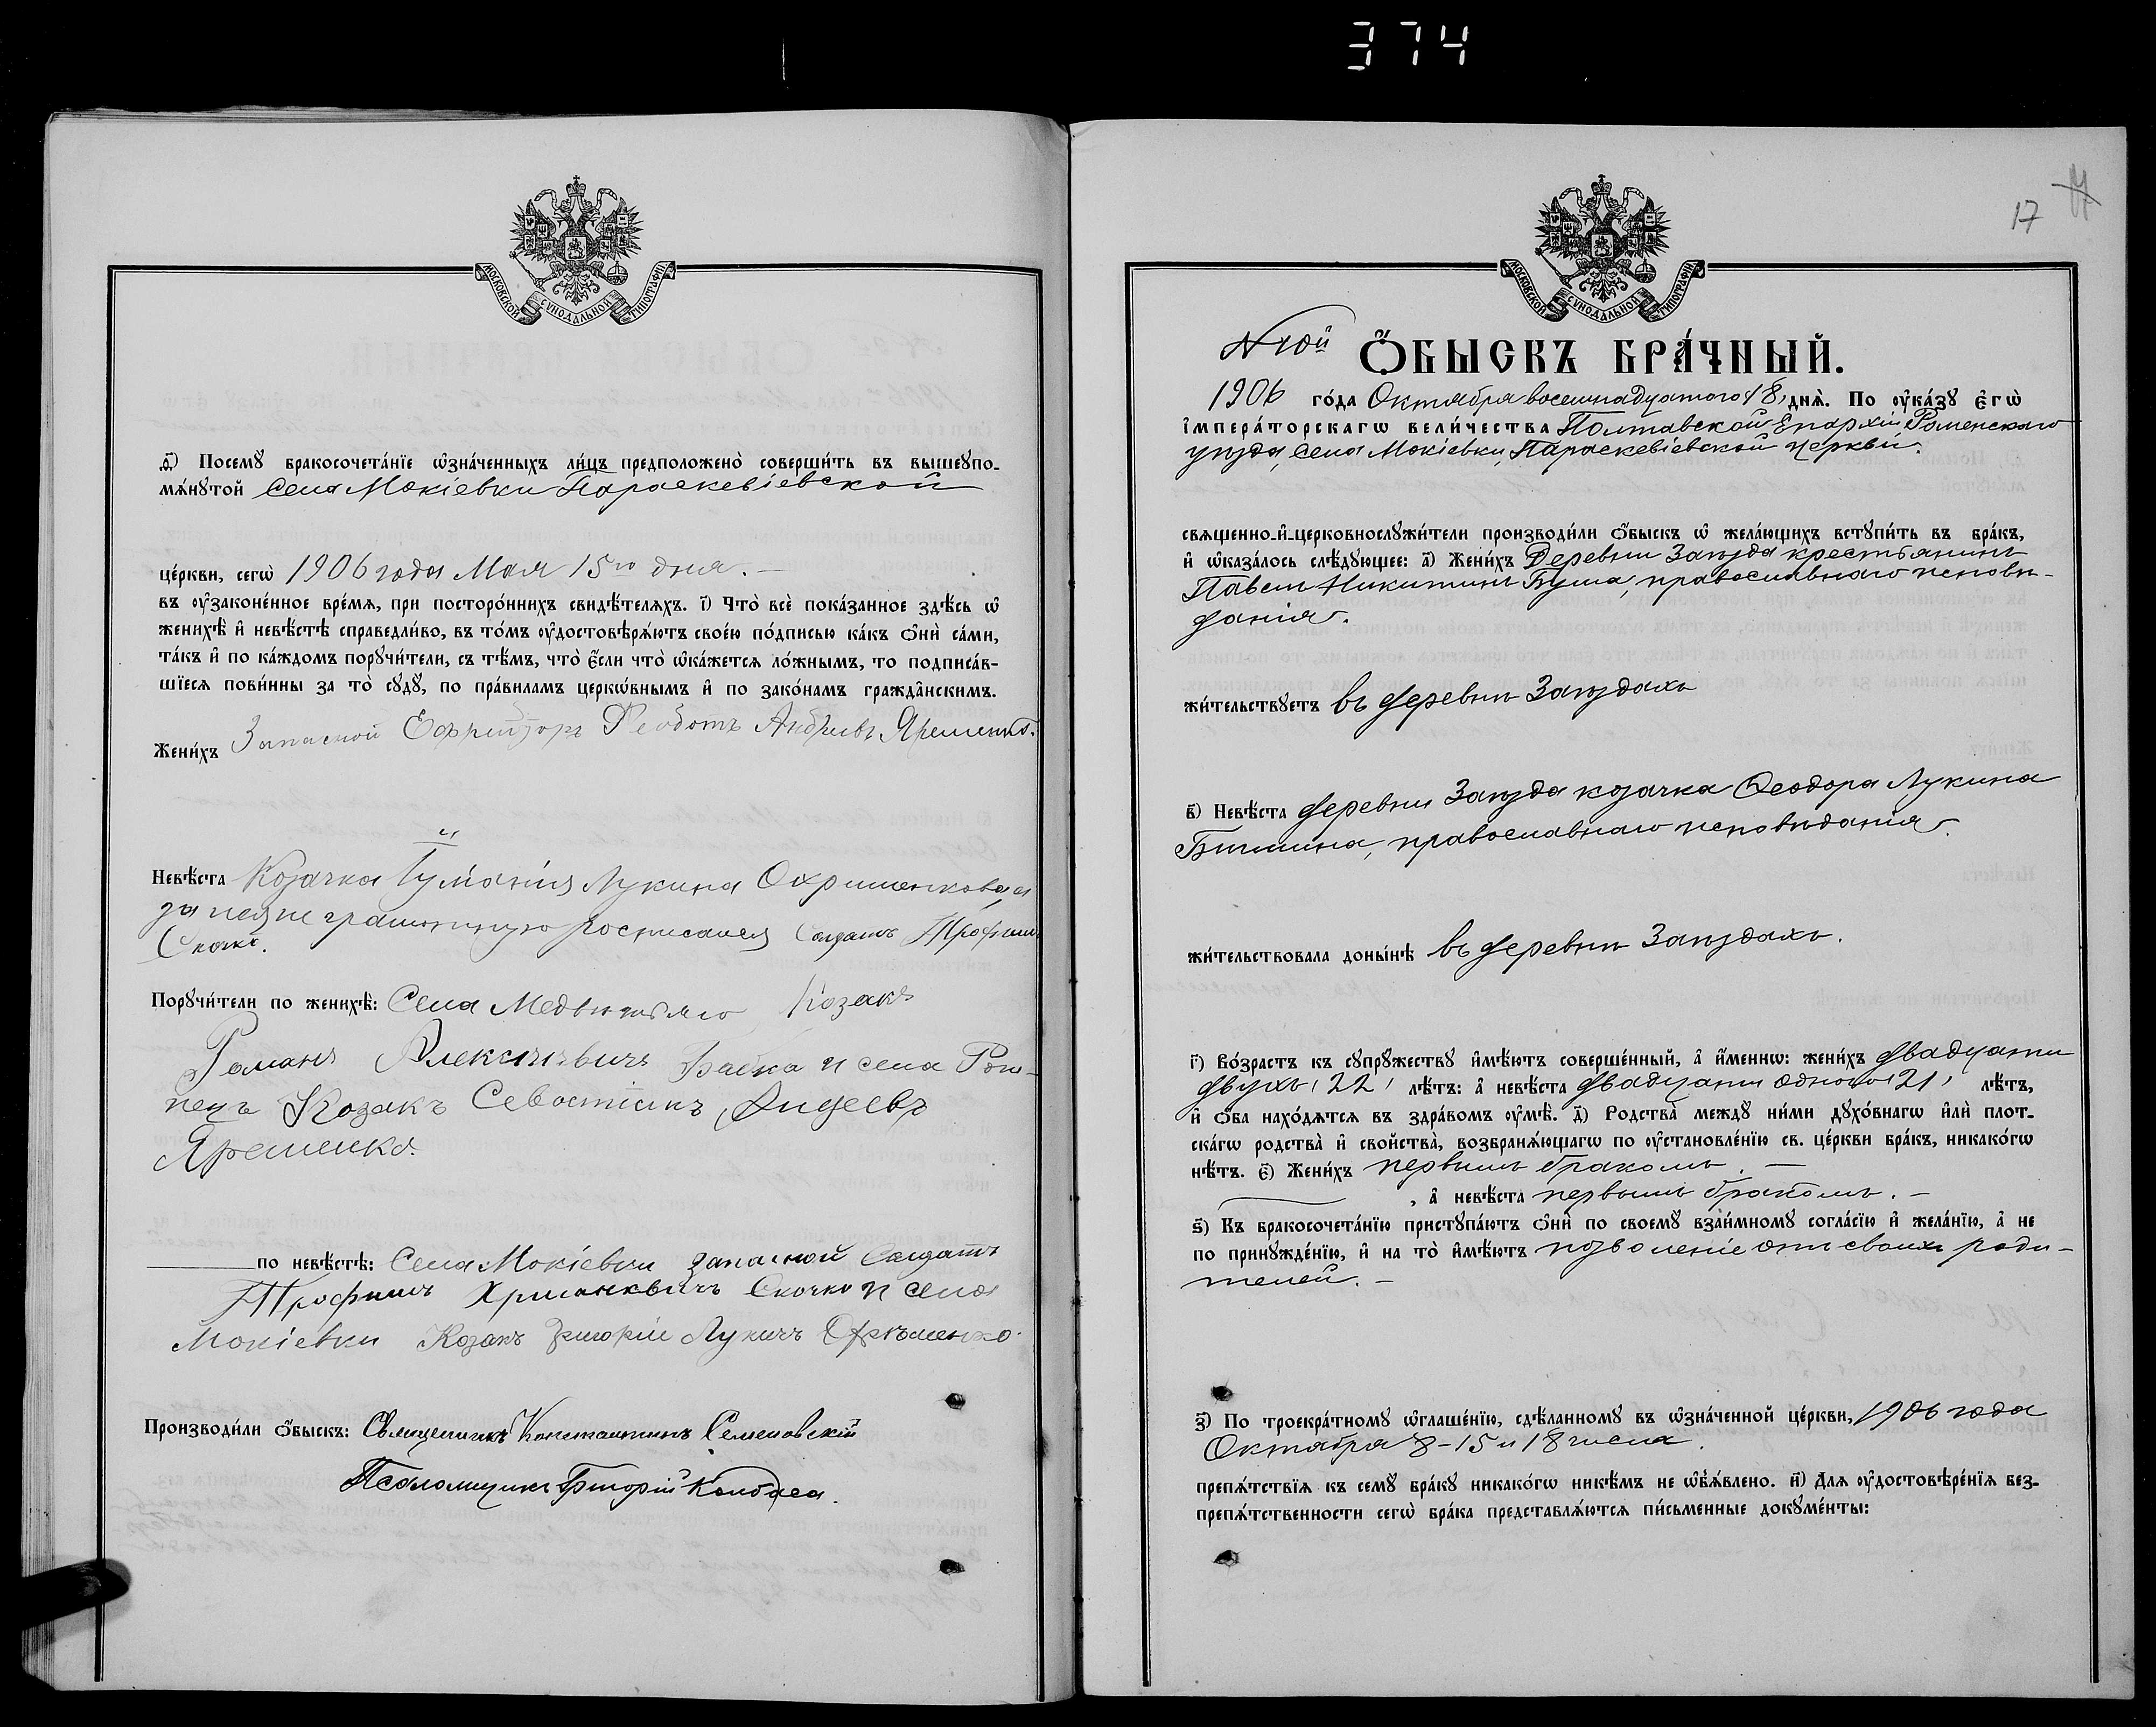 374
МОСКОВСКОЙ СѴНОДАЛЬНОЙ ТИПОГРАФІИ
ѳ҃) Посемꙋ бракосочета́нїе ѡ҆зна́ченныхъ ли́цъ предположено̀ соверши́ть въ вышеꙋпо-
мѧ́нꙋтой Села Мокіевки Параскевіевской
це́ркви, сегѡ̀ 1906 года Мая 15го дня. —
въ ᲂу҆законе́нное вре́мѧ, при посторо́ннихъ свидѣ́телѧхъ. і҃) Что̀ всѐ пока́занное здѣ́сь ѡ҆
женихѣ̀ и҆ невѣ́стѣ справедли́во, въ то́мъ ᲂу҆достовѣрѧ́ютъ свое́ю по́дписью ка́къ ѻ҆нѝ са́ми,
та́къ и҆ по ка́ждомъ порꙋчи́тели, съ тѣ́мъ, что̀ є҆́сли что̀ ѡ҆ка́жетсѧ ло́жнымъ, то подписа́в-
шїесѧ пови́нны за то̀ сꙋдꙋ̀, по пра́виламъ церкѡ́внымъ и҆ по зако́намъ гражда̑нскимъ.
Жени́хъ Запасной Ефрейторъ Феодотъ Андреевъ Яременко.
Невѣ́ста Козачка Лукина Охрименкова, а
за нея неграмотную росписался Солдатъ Трофим
Скочко.
Порꙋчи́тели по женихѣ̀: Села Медвежяго Козакъ
Романъ Алексѣевичъ Бабка и села
Козакъ Севостіянъ Андеевъ
Яременко.
по невѣ́стѣ: Села Мокіевки запасной Солдатъ
Трофимъ Скочко и села
Мокіевки Козакъ Григорій Лукичъ
Производи́ли ѻ҆́быскъ: Священникъ Константинъ Семеновскій
Псаломщикъ Григорій Колбаса.
17
МОСКОВСКОЙ СѴНОДАЛЬНОЙ ТИПОГРАФІИ
N 10й Ѻ҆́БЫСКЪ БРА́ЧНЫЙ.
1906 го́да Октября восемнадцатого 18, днѧ̀. По ᲂу҆ка́зꙋ є҆гѡ̀
і҆мпера́торскагѡ вели́чества Полтавской Епархіи Роменскаго
уѣзда, Села Мокіевки, Параскевіевской церкви.
свѧщенно-и҆-церковнослꙋжи́тели производи́ли ѻ҆́быскъ ѡ҆ жела́ющихъ встꙋпи́ть въ бра́къ,
и҆ ѡ҆каза́лось слѣ́дꙋющее: а҃) Жени́хъ Деревни Заѣзда крестьянинъ
Павелъ Никитинъ Буша, православнаго исповѣ-
данія.
жи́тельствꙋетъ въ деревнѣ Заѣздахъ
в҃) Невѣ́ста деревни Заѣзда козачка Ѳеодора Лукина
православнаго исповѣданія.
жи́тельствовала доны́нѣ въ деревнѣ Заѣздахъ.
г҃) Во́зрастъ къ сꙋпрꙋ́жествꙋ и҆мѣ́ютъ соверше́нный, а҆ и҆́меннѡ: жени́хъ двадцати
двухъ, 22, лѣ́тъ: а҆ невѣ́ста двадцати одного, 21, лѣ́тъ,
и҆ ѻ҆́ба нахо́дѧтсѧ въ здра́вомъ ᲂу҆мѣ̀. д҃) Родства̀ междꙋ ни́ми дꙋхо́внагѡ и҆лѝ плот-
ска́гѡ родства̀ и҆ свойства̀, возбранѧ́ющагѡ по ᲂу҆становле́нїю св. це́ркви бра́къ, никако́гѡ
нѣ́тъ. є҃) Жени́хъ первымъ бракомъ. —
, а҆ невѣ́ста первымъ бракомъ. —
ѕ҃) Къ бракосочета́нїю пристꙋпа́ютъ ѻ҆нѝ по своемꙋ̀ взаи́мномꙋ согла́сїю и҆ жела́нїю, а҆ не
по принꙋжде́нїю, и҆ на то̀ и҆мѣ́ютъ позволеніе отъ своихъ роди-
телей. —
з҃) По троекра́тномꙋ ѡ҆глаше́нїю, сдѣ́ланномꙋ въ ѡ҆зна́ченной це́ркви, 1906 года
Октября 8-15 и 18 числа.
препѧ́тствїѧ къ семꙋ̀ бра́кꙋ никако́гѡ никѣ́мъ не ѡ҆б̾ѧ́влено. и҃) Длѧ ᲂу҆достовѣре́нїѧ без-
препѧ́тственности сегѡ̀ бра́ка представлѧ́ютсѧ пи́сьменные докꙋме́нты: